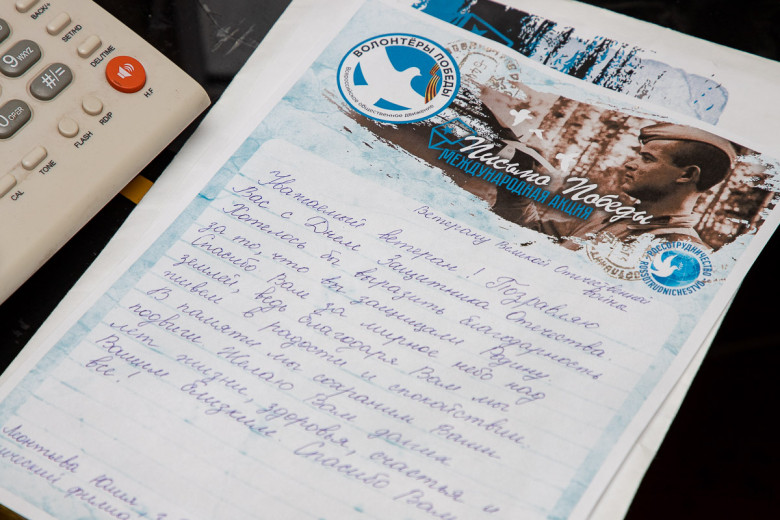 BACK+
SET/HD
DEL/TIME
9 WXYZ
#/=
H.F
RDIP
FLASH
0 OPER
TONE
CAL
ВОЛОНТЁРЫ ПОБЕДЫ
Всероссийское общественное движение
Письмо Победы
МЕЖДУНАРОДНАЯ АКЦИЯ
РОССОТРУДНИЧЕСТВО
ROSSOTRUDNICHESTVO
Ветерану Великой Отечественной
Войны
Уважаемый ветеран! Поздравляю
Вас с Днем Защитника Отечества.
Хотелось бы выразить благодарность
за то, что вы защищали Родину.
Спасибо Вам за мирное небо над
землей, ведь благодаря Вам мы
живем в радости и спокойствии.
В памяти мы сохраним Ваши
подвиги. Желаю Вам долгих
лет жизни, здоровья, счастья и
Вашим близким. Спасибо Вам
все!
Леонтьева Юлия